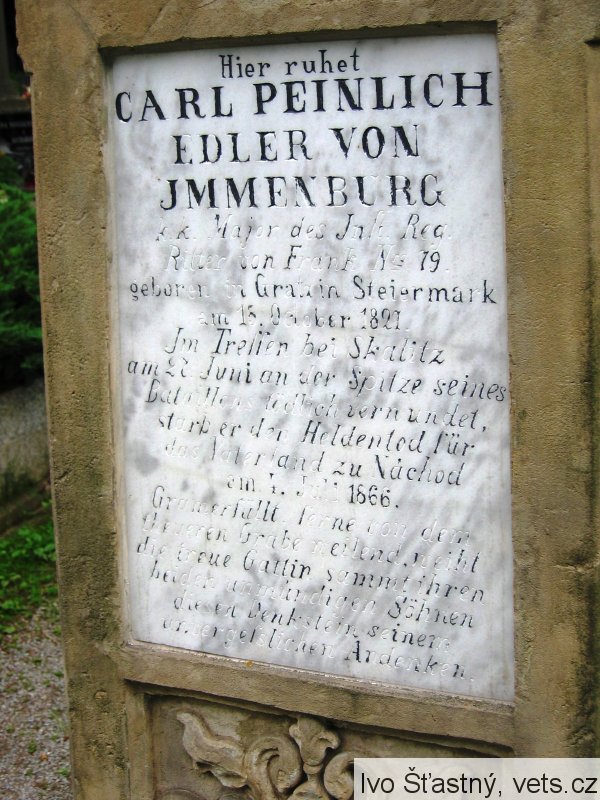 Hier ruhet
CARL PEINLICH
EDLER VON
JMMENBURG
k.k. Major des Inft. Reg.
Ritter von Frank No. 79.
geboren in Gratz in Steiermark
am 15. October 1821.
Jm Treffen bei Skalitz
am 27. Juni an der Spitze seines
Bataillons tödlich verwundet,
starb er den Heldentod für
das Vaterland zu Náchod
am 1. Juli 1866.
Gramerfüllt, ferne von dem
theueren Grabe weilend, weiht
die treue Gattin sammt ihren
beiden unmündigen Söhnen
diesen Denkstein seinem
unvergesslichen Andenken.
Ivo Šťastný, vets.cz